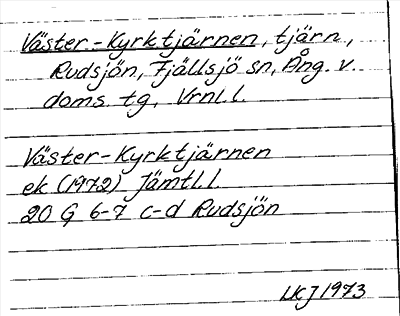 Väster-Kyrktjärnen, tjärn,
Rudsjön, Fjällsjö sn, Ång. v.
doms. tg, Vrnl.l.
Väster-Kyrktjärnen
ek (1972) Jämtl.l.
20 G 6-7 c-d Rudsjön
LKJ 1973